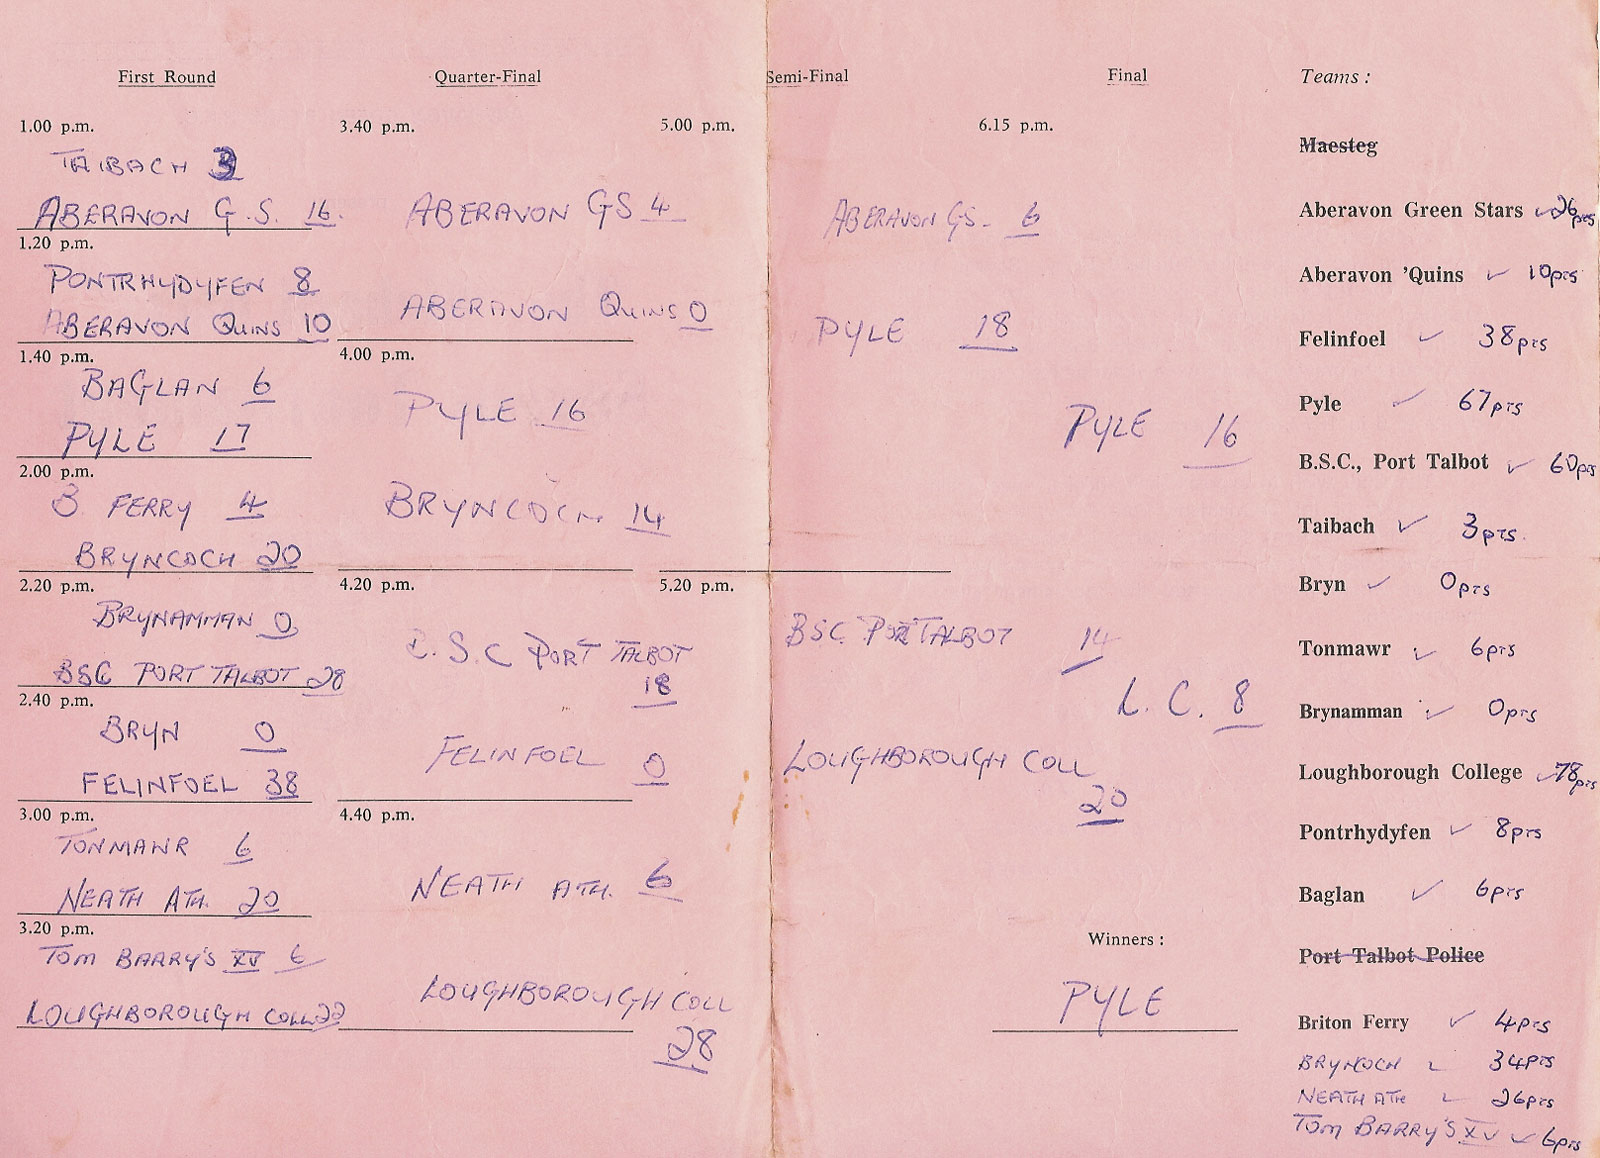 First Round
1.00 p.m.
TAIBACH 3
ABERAVON G.S. 16.
1.20 p.m.
PONTRHYDYFEN 8
ABERAVON QUINS 10
1.40 p.m.
BAGLAN 6
PYLE 17
2.00 p.m.
B FERRY 4
BRYNCOCH 20
2.20 p.m.
BRYNAMMAN 0
BSC PORT TALBOT 28
2.40 p.m.
BRYN 0
FELINFOEL 38
3.00 p.m.
TONMAWR 6
NEATH ATH. 20
3.20 p.m.
TOM BARRY'S XV 6
LOUGHBOROUGH COLL 22
Quarter-Final
3.40 p.m.
ABERAVON GS 4
ABERAVON QUINS 0
4.00 p.m.
PYLE 16
BRYNCOCH 14
4.20 p.m.
B.S.C PORT TALBOT
18
FELINFOEL 0
4.40 p.m.
NEATH ATH. 6
LOUGHBOROUGH COLL
28
Semi-Final
5.00 p.m.
ABERAVON GS- 6
PYLE 18
5.20 p.m.
BSC PORT TALBOT 14
LOUGHBOROUGH COLL
20
Final
6.15 p.m.
PYLE 16
L. C. 8
Winners :
PYLE
Teams :
Maesteg
Aberavon Green Stars ✓ 26pts
Aberavon 'Quins ✓ 10pts
Felinfoel ✓ 38pts
Pyle ✓ 67pts
B.S.C., Port Talbot ✓ 60pts
Taibach ✓ 3pts.
Bryn ✓ 0pts
Tonmawr ✓ 6pts
Brynamman ✓ 0pts
Loughborough College ✓ 78pts
Pontrhydyfen ✓ 8pts
Baglan ✓ 6pts
Port Talbot Police
Briton Ferry ✓ 4pts
BRYNCOCH ✓ 34pts
NEATH ATH ✓ 26pts
TOM BARRY'S XV ✓ 6pts